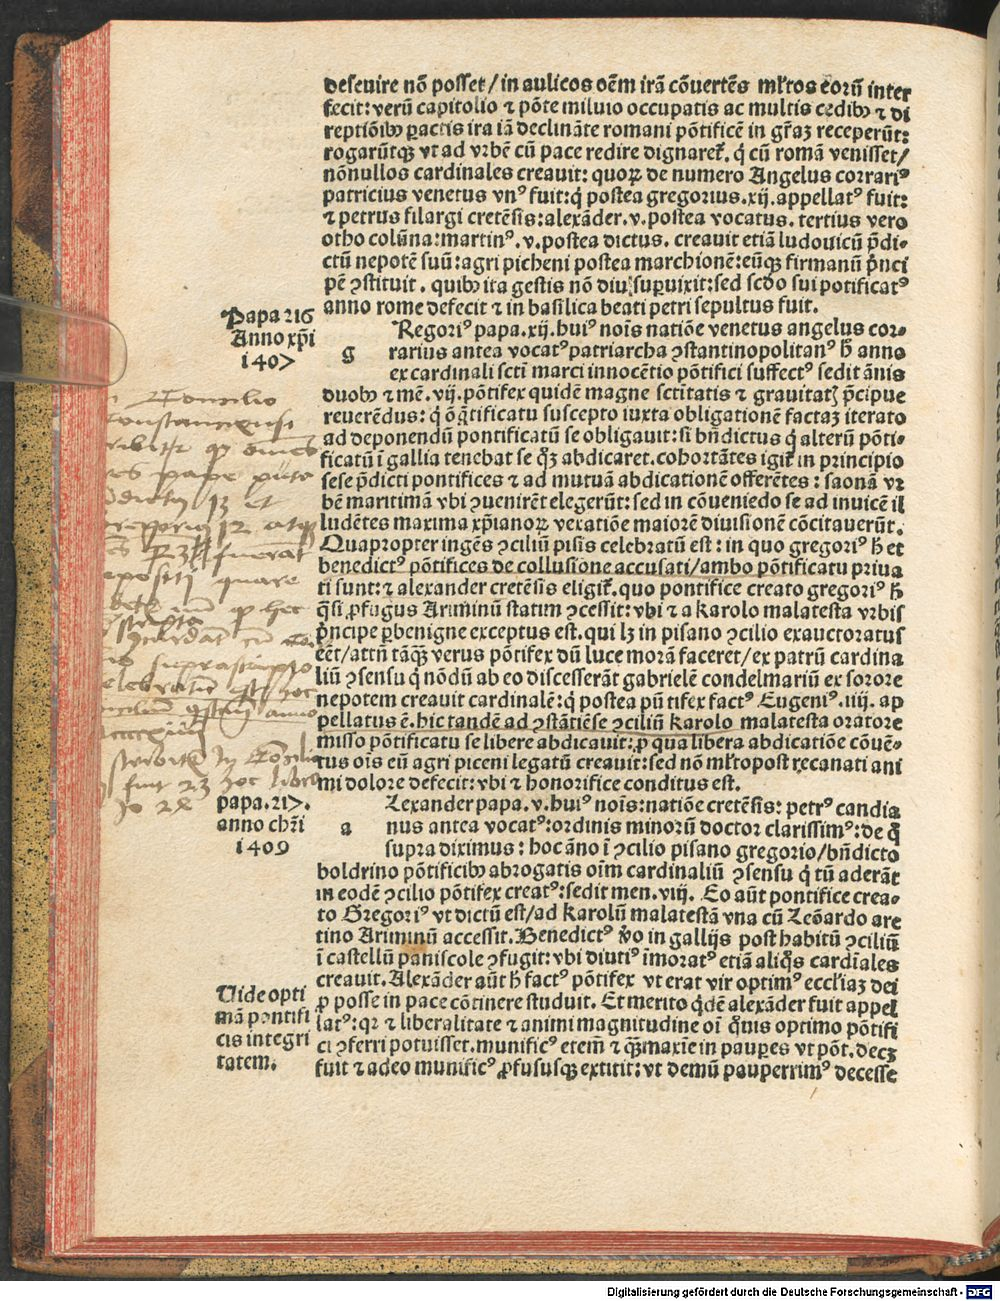 deseuire nō posset/in aulicos oēm irā cōuertēs ml̄tos eorū inter
fecit: verū capitolio ⁊ pōte miluio occupatis ac multis cedibꝰ ⁊ di
reptiōibꝰ ꝑactis ira iā declināte romani pōtificē in gr̄aꝫ receperūt:
rogarūtqꝫ vt ad vrbē cū pace redire dignaret᷑. q̇ cū romā venisset/
nōnullos cardinales creauit: quoꝝ de numero Angelus corrariꝰ
patricius venetus vnꝰ fuit: q̇ postea gregorius.xij.appellatꝰ fuit:
⁊ petrus filargi cretēsis: alexāder.v.postea vocatus. tertius vero
otho colūna: martinꝰ.v.postea dictus. creauit etiā ludouicū p̄di-
ctū nepotē suū: agri picheni postea marchionē: eūqꝫ firmanū p̄nci
pē ꝯstituit. quibꝰ ita gestis nō diu suꝑuixit: sed scd̄o sui pōtificatꝰ
anno rome defecit ⁊ in basilica beati petri sepultus fuit.
Papa 216
Anno xp̄i
1407
g
Regoriꝰ papa.xij.huiꝰ nois̄ natiōe venetus angelus cor-
rarius antea vocatꝰ patriarcha ꝯstantinopolitanꝰ h̄ anno
ex cardinali scti marci innocētio pōtifici suffectꝰ sedit ānis
duobꝰ ⁊ mē.vij.pōtifex quidē magne sctitatis ⁊ grauitatꝭ p̄cipue
reuerēdus: q̇ ō q̄tificatu suscepto iuxta obligationē factaꝫ iterato
ad deponendū pontificatū se obligauit: si bn̄dictus q̇ alterū pōti-
ficatū ī gallia tenebat se qꝫ abdicaret. cohortātes igit᷑ in principio
sese p̄dicti pontifices ⁊ ad mutuā abdicationē offerētes: saonā vr
bē maritimā vbi ꝯuenirēt elegerūt: sed in cōueniēdo se ad inuicē il
ludētes maxima xp̄ianoꝝ vexatiōe maiorē diuisionē cōcitauerūt.
Quapropter ingēs ꝯciliū pisis celebratū est: in quo gregoriꝰ h̄ et
benedictꝰ pōtifices de collusione accusati/ambo pōtificatu priua
ti sunt: ⁊ alexander cretēsis eligit᷑. quo pontifice creato gregoriꝰ h̄
q̄si ꝓfugus Ariminū statim ꝯcessit: vbi ⁊ a Karolo malatesta vrbis
p̄ncipe ꝑbenigne exceptus est. qui lꝫ in pisano ꝯcilio exauctoratus
eēt/attn̄ tāqꝫ verus pōtifex dū luce morā faceret/ex patrū cardina
liū ꝯsensu q̇ nōdū ab eo discesserāt gabrielē condelmariū ex sorore
nepotem creauit cardinalē: q̇ postea pōtifex factꝰ Eugeniꝰ.iiij.ap
pellatus ē. hic tandē ad ꝯstātiēse ꝯciliū Karolo malatesta oratore
misso pōtificatu se libere abdicauit: ꝓ qua libera abdicatiōe cōuē-
tus ois̄ eū agri piceni legatū creauit: sed nō ml̄topost recanati ani
mi dolore defecit: vbi ⁊ honorifice conditus est.
Concilio
Constanciensi
papa.217.
anno chr̄i
1409
a
Lexander papa.v.huiꝰ nois̄: natiōe cretēsis: petrꝰ candia
nus antea vocatꝰ: ordinis minorū doctor clarissimꝰ: de q̄
supra diximus: hoc āno ī ꝯcilio pisano gregorio/bn̄dicto
boldrino pōtificibꝰ abrogatis oīm cardinaliū ꝯsensu q̇ tū aderāt
in eodē ꝯcilio pōtifex creatꝰ: sedit men.viij. Eo aūt pontifice crea-
to Gregoriꝰ vt dictū est/ad Karolū malatestā vna cū Leōardo are
tino Ariminū accessit. Benedictꝰ v̄o in gallijs post habitū ꝯciliū
ī castellū paniscole ꝯfugit: vbi diutiꝰ īmoratꝰ etiā aliq̄s cardīales
creauit. Alexāder aūt h̄ factꝰ pōtifex vt erat vir optimꝰ eccl̄iaꝫ dei
ꝓ posse in pace cōtinere studuit. Et merito q̄dē alexāder fuit appel
latꝰ: qꝛ ⁊ liberalitate ⁊ animi magnitudine oī q̄uis optimo pōtifi
ci ꝯferri potuisset. munificꝰ etem̄ ⁊ qꝫmaxīe in pauꝑes vt pōt. decꝫ
fuit ⁊ adeo munificꝰ ꝓfususqꝫ extitit: vt demū pauperrimꝰ decesse
Uide opti
mā pontifi
cis integri
tatem.
Digitalisierung gefördert durch die Deutsche Forschungsgemeinschaft - DFG